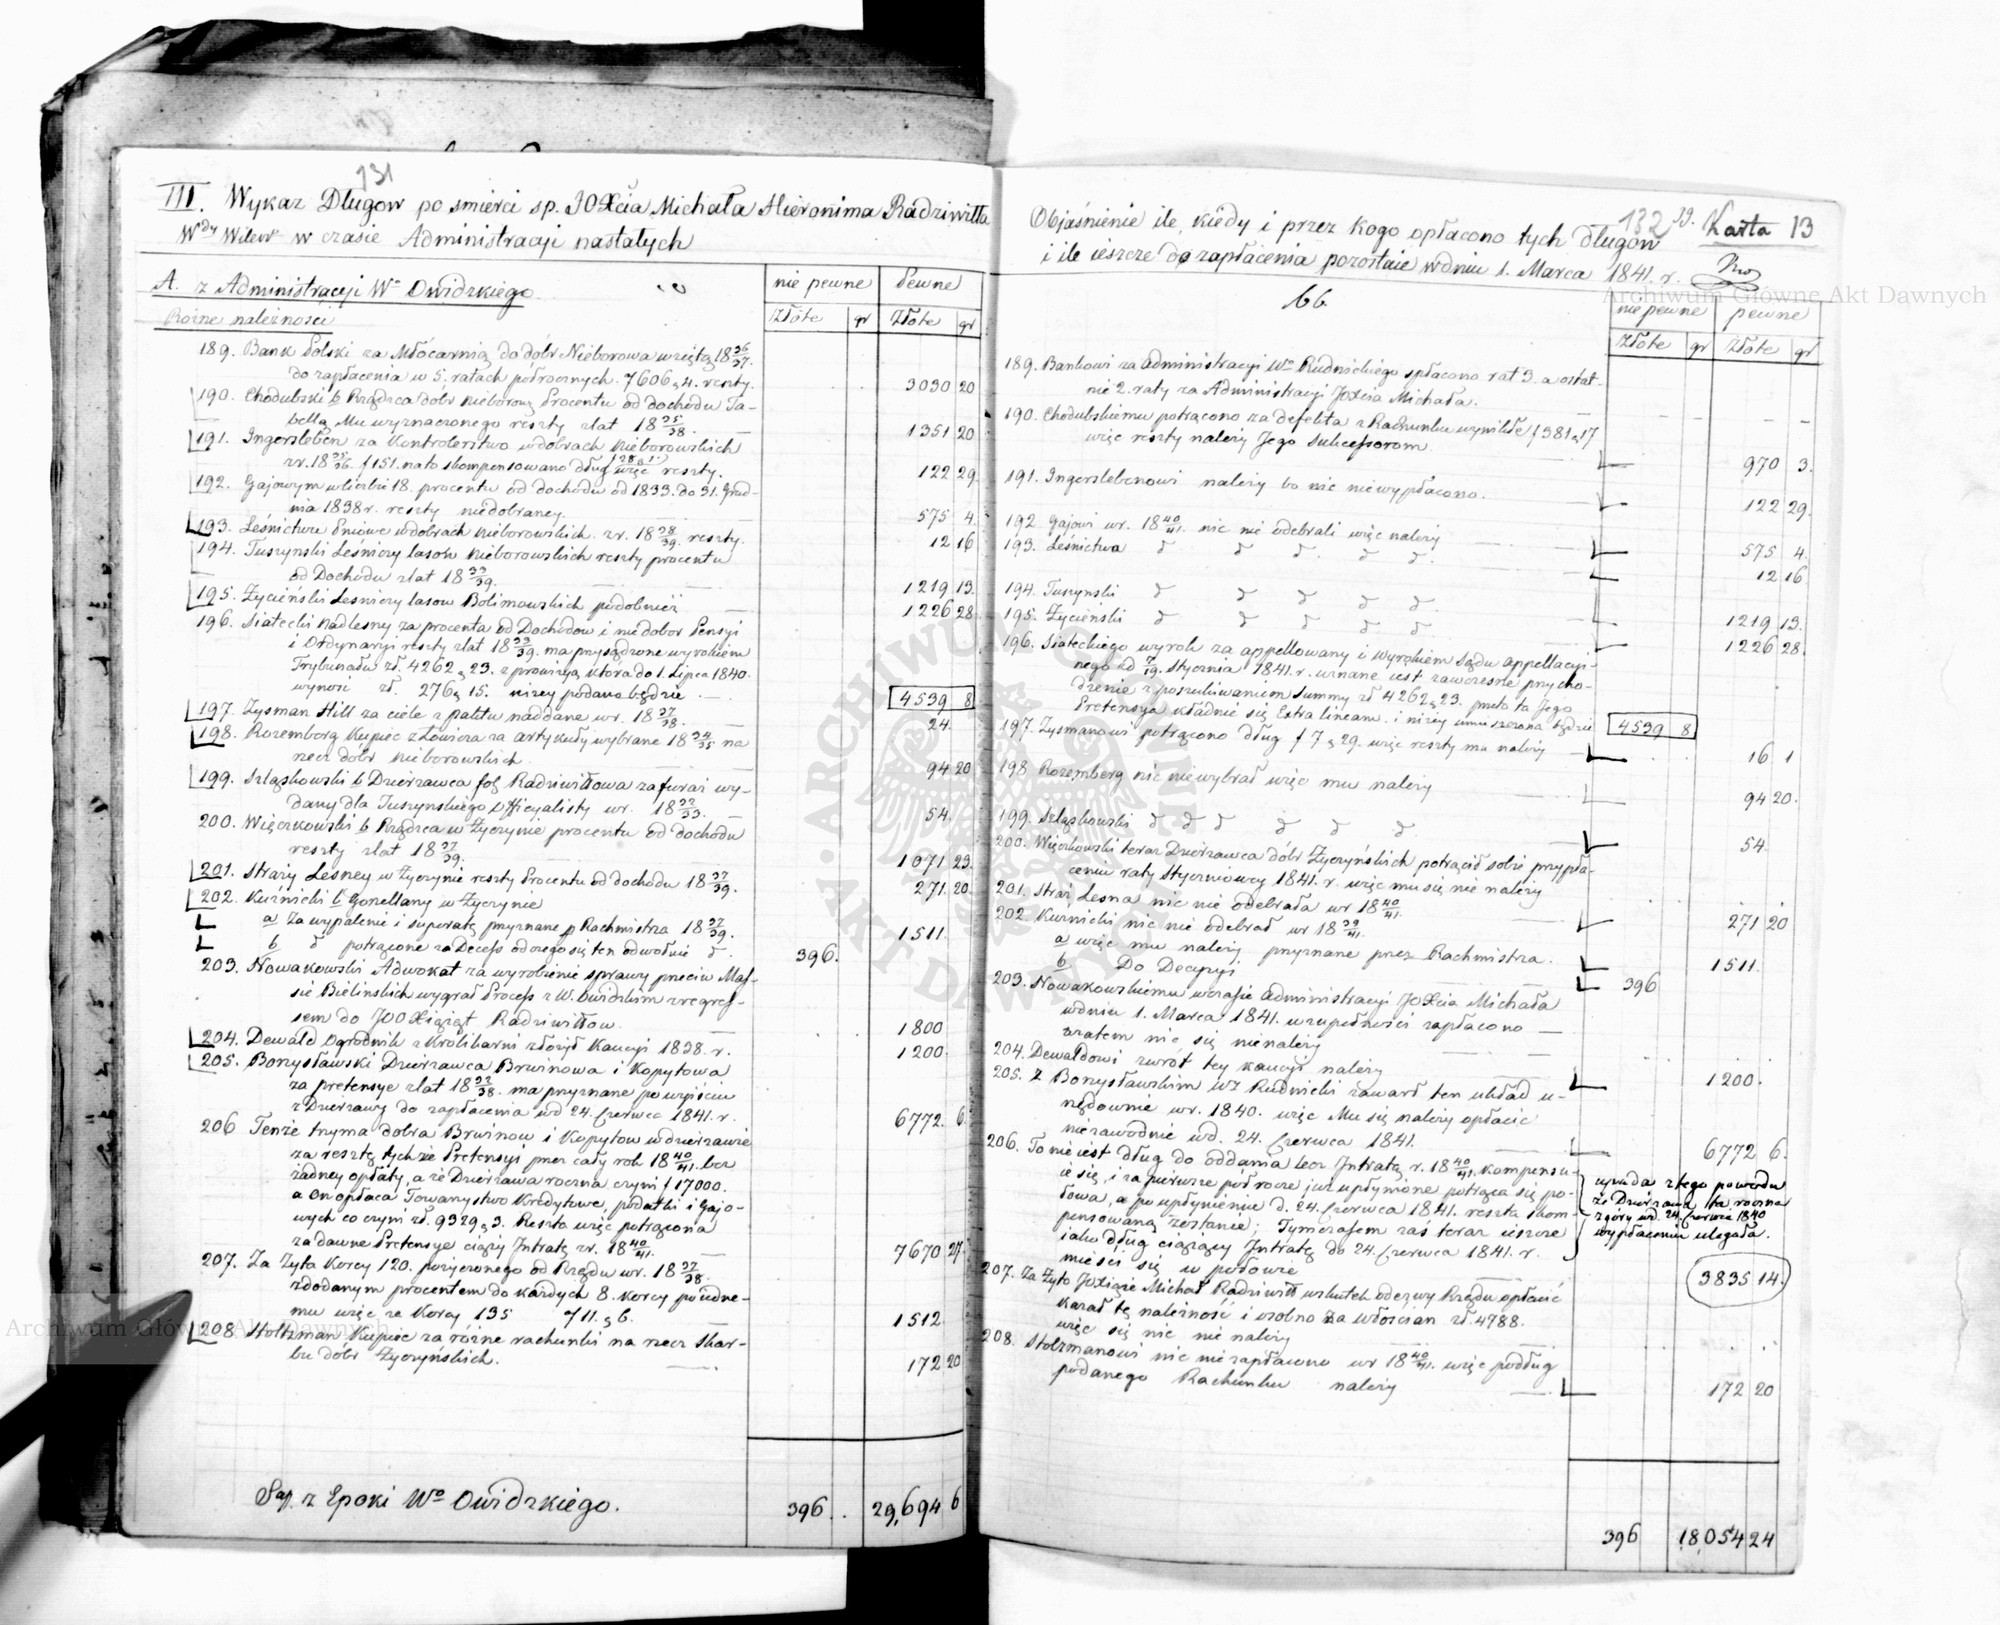 131
III. Wykaz Długow po smierci sp. JOXcia Michała Hieronima Radziwiłła
Wdy Wilew w czasie Administracyi nastałych
A. z Administracyi Wo Owidzkiego
nie pewne Pewne
Złote gr Złote gr
Rożne należności
189. Bank Polski za Młócarnią do dobr Nieborowa wziętą 18 36/37.
do zapłacenia w 5. ratach półrocznych. 7606 „ 4. reszty. 3030 20
190. Chodubski b Rządca dobr Nieborow. Procentu od dochodu Ta-
bellą Mu wyznaczonego reszty zlat 18 35/38. 1351 20
191. Ingersleben za Kontrolerstwo w dobrach Nieborowskich
zr. 18 35/36. f 151. na to skompensowano dług więc reszty. 122 29
192. Gajowym w liczbie 18. procentu od dochodu od 1833. do 31. Grud-
nia 1838 r. reszty niedobraney. 575 4.
193. Leśnictwu Gniowe w dobrach Nieborowskich zr. 18 38/39. reszty. 12 16
194. Tuszynski Leśniczy lasow Nieborowskich reszty procentu
od Dochodu zlat 18 33/39. 1219 13.
195. Życieński Lesniczy lasow Bolimowskich podobnież 1226 28
196. Siatecki Nadlesny za procenta od Dochodow i niedobor Pensyi
i Ordynaryi reszty zlat 18 33/39. ma przysądzone wyrokiem
Trybunału zł. 4262 „ 23. z prowizyą która do 1. Lipca 1840.
wynosi zł. 276 „ 15. niżey podana będzie 4539 8
197. Zysman Hill za ciele z paktu naddane wr. 18 37/38. 24.
198. Rozemberg Kupiec z Łowicza za artykuły wybrane 18 34/35 na
rzecz dóbr Nieborowskich 94 20
199. Szląskowski b Dzierżawca fol. Radziwiłłowa za furaż wy-
dany dla Tuszynskiego Officyalisty wr. 18 32/33. 54.
200. Więckowski b Rządca w Życzynie procentu od dochodu
reszty zlat 18 37/39. 1071 23.
201. Straży Lesney w Życzynie reszty Procentu od dochodu 18 37/39. 271. 20.
202. Kuźnicki b Gorzellany w Życzynie
a Za wypalenie i superatę przyznane p Rachmistrza 18 37/39. 1511.
b potrącone za Decess od czego się ten odwołuie 396.
203. Nowakowski Adwokat za wyrobienie sprawy przeciw Mas-
sie Bielinskich wygrał Process z W. Owidzkim z regres-
sem do JOO Xiąząt Radziwiłłow. 1800
204. Dewald Ogrodnik z Królikarni złożył Kaucyi 1838. r. 1200.
205. Borzysławski Dzierżawca Brwinowa i Kopytowa
za pretensye zlat 18 32/38. ma przyznane po wyiściu
z Dzierżawy do zapłacenia wd 24. Czerwca 1841. r. 6772. 6.
206 Tenże trzyma dobra Brwinow i Kopytow w dzierżawie
za resztę tychże Pretensyi przez cały rok 18 40/41. bez
żadney opłaty, a że Dzierżawa roczna czyni f 17000.
a On opłaca Towarzystwo Kredytowe, podatki i Gajo-
wych co czyni zł. 9329 „ 3. Reszta więc potrącona
za dawne Pretensye ciąży Intratę zr. 18 40/41. 7670 27.
207. Za Żyto Korcy 120. pożyczonego od Rządu wr. 18 37/38.
z dodanym procentem do każdych 8. korcy po iedne-
mu więc za Korcy 135 7 11. „ 6. 1512
208 Stoltzman Kupiec za różne rachunki na rzecz Skar-
bu dóbr Życzyńskich. 172 20
Sap. z Epoki Wo Owidzkiego. 396 . . 29,694 6
132 29. Karta 13
Objaśnienie ile, kiedy i przez kogo opłacono tych długow
i ile ieszcze do zapłacenia pozostaie w dniu 1. Marca 1841. r.
66
nie pewne pewne
Złote gr Złote gr
189. Bankowi za Administracyi Wo Rudnickiego spłacono rat 3. a ostat-
nie 2. raty za Administracyi JOXcia Michała.
190. Chodubskiemu potrącono za defekta z Rachunku wynikłe f 381 „ 17
więc reszty należy Jego Sukcessorom 970 3.
191. Ingerslebenowi należy bo nic niewypłacono. 122 29.
192 Gajowi wr. 18 40/41. nic nie odebrali więc należy 575 4.
193. Leśnictwa 12 16.
194. Tuszynski 1219 13.
195. Życieński 1226 28.
196. Siateckiego wyrok zaappellowany i Wyrokiem Sądu Appellacyi-
nego zd 7/19. Stycznia 1841. r. uznane iest zawczesne przycho-
dzenie z poszukiwaniem summy zł 4262 „ 23. przeto ta Jego
Pretensya kładnie się Extra lineam. i niżey umieszczona będzie 4539 8
197. Zysmanowi potrącono dług f 7 „ 29. więc reszty mu należy 16 1
198 Rozemberg nic niewybrał więc mu należy 94 20.
199. Szląskowski 54.
200. Więckowski teraz Dzierżawca dóbr Życzyńskich potrącił sobie przy pła-
ceniu raty Styczniowey 1841. r. więc mu się nie należy
201. Straż Lesna nic nie odebrała wr 18 40/41. 271 20
202. Kuznicki nic nie odebrał wr 18 39/41.
a więc mu należy przyznane przez Rachmistrza. 1511.
b Do Decyzyi 396
203. Nowakowskiemu w czasie Administracyi JOXcia Michała
w dniu 1. Marca 1841. w zupełności zapłacono
zatem nic się nienależy
204. Dewaldowi zwrót tey kaucyi należy 1200.
205. Z Borzysławskim WZ Rudnicki zawarł ten układ u-
rzędownie wr. 1840. więc Mu się należy opłacić
niezawodnie wd. 24. Czerwca 1841. 6772 6.
206. To nie iest dług do oddania lecz Intratą r. 18 40/41. kompensu-
ie się, i za pierwsze pół rocze już upłynione potrąca się po-
łowa, a po upłynieniu d. 24. Czerwca 1841. reszta skom-
pensowaną zostanie; Tymczasem zaś teraz ieszcze
iako dług ciążący Intratę do 24. Czerwca 1841. r.
mieści się w połowie 3835 14.
upada z tego powodu
że Dzierżawa ta roczna
z góry wd. 24. Czerwca 1840
wypłaceniu ulegała.
207. Za Żyto JO Xiąże Michał Radziwiłł w skutek odezwy Rządu opłacić
kazał tę należność i osobno za włościan zł. 4788.
więc się nic nie należy
208. Stolzmanowi nic nie zapłacono wr 18 40/41. więc podług
podanego Rachunku należy 172 20
396 18,054 24
Archiwum Główne Akt Dawnych
Archiwum Główne Akt Dawnych
ARCHIWUM GŁÓWNE AKT DAWNYCH